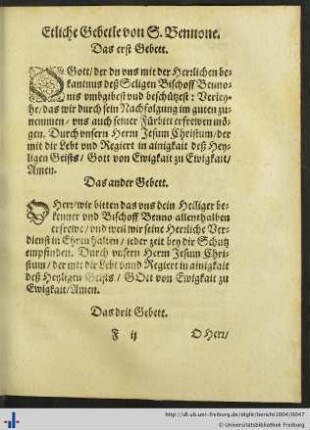 Etliche Gebetle von S. Bennone.
Das erst Gebett.
O Gott/ der du vns mit der Herrlichen be-
kantnus deß Seligen Bischoff Benno-
nis vmbgibest vnd beschützest: Verley-
he/ das wir durch sein Nachfolgung im guten zu-
nemmen/ vns auch seiner Fürbitt erfrewen mö-
gen. Durch vnsern Herrn Jesum Christum/ der
mit dir Lebt vnd Regiert in ainigkait deß Hey-
ligen Geists/ Gott von Ewigkait zu Ewigkait/
Amen.
Das ander Gebett.
O Herr/ wir bitten das vns dein Heiliger be-
kenner vnd Bischoff Benno allenthalben
erfrewe/ vnd weil wir seine Herrliche Ver-
dienst in Ehren halten/ jeder zeit bey dir Schutz
empfinden. Durch vnsern Herrn Jesum Chri-
stum/ der mit dir Lebt vnnd Regiert in ainigkait
deß Heyligen Geists/ GOtt von Ewigkait zu
Ewigkait/ Amen.
Das drit Gebett.
F ij
O Herr/
http://dl.ub.uni-freiburg.de/diglit/bericht1604/0047
© Universitätsbibliothek Freiburg